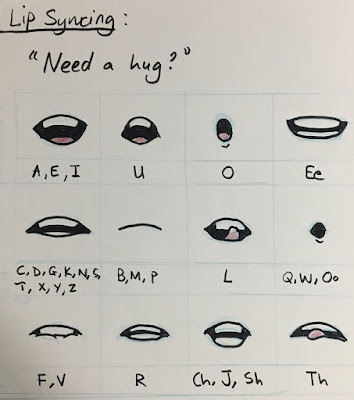 Lip Syncing:
"Need a hug?"
A, E, I
U
O
Ee
C, D, G, K, N, S,
T, X, Y, Z
B, M, P
L
Q, W, Oo
F, V
R
Ch, J, Sh
Th